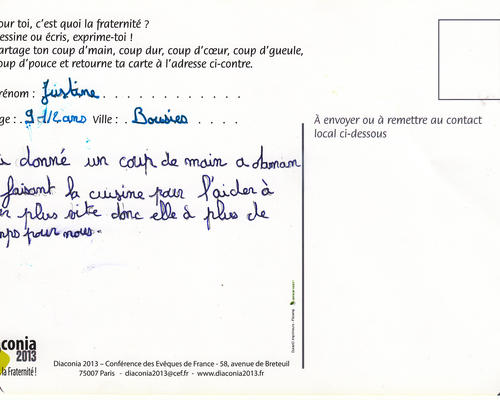 our toi, c'est quoi la fraternité ?
essine ou écris, exprime-toi !
artage ton coup d'main, coup dur, coup d'cœur, coup d'gueule,
oup d'pouce et retourne ta carte à l'adresse ci-contre.
rénom : Justine
ge : 9 1/2 ans Ville : Bousies
À envoyer ou à remettre au contact
local ci-dessous
i donné un coup de main a maman
faisant la cuisine pour l'aider à
er plus vite donc elle à plus de
mps pour nous.
conia
2013
la Fraternité !
Diaconia 2013 – Conférence des Evêques de France - 58, avenue de Breteuil
75007 Paris - diaconia2013@cef.fr - www.diaconia2013.fr